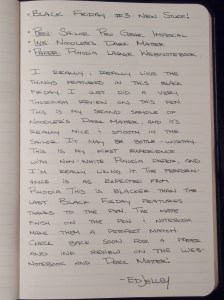 · Black Friday #3: New Stuff!
· Pen: Sailor Pro Gear Imperial
· Ink: Noodler's Dark Matter
· Paper: Rhodia Large Webnotebook
I really, really like the
things featured in this Black
Friday. I just did a very
thorough review on this pen.
This is my second sample of
Noodler's Dark Matter, and it's
really nice & smooth in the
Sailor. It may be bottle-worthy.
This is my first experience
with non-white Rhodia paper, and
I'm really liking it. The perform-
ance is as expected from
Rhodia. This is blacker than the
last Black Friday features
thanks to the pen. The matte
finish on the pen & notebook
make them a perfect match.
Check back soon for a paper
and ink review on the Web-
notebook and Dark Matter!
— Ed Jelley